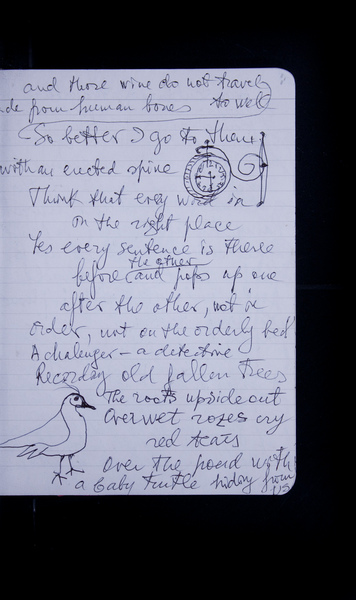 and those wine do not travel
de from human bones so well
So better I go to them
with an erected spine
Think that every word is
on the right place
Yes every sentence is there
the other
before (and pops up one
after the other, not in
order, not on the orderly bed
A chalenger – a detective
Recording old fallen trees
The roots upside out
Over wet rozes cry
red tears
Over the pond with
a baby turtle hiding from
us